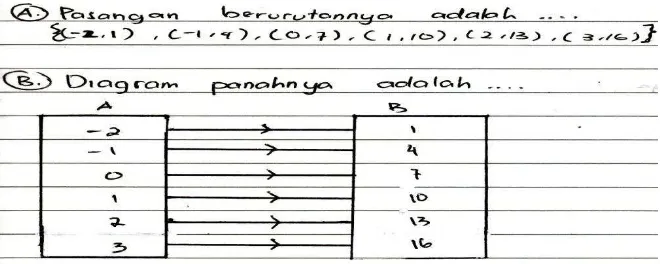 A.) Pasangan berurutannya adalah ....
{(-2,1), (-1,4), (0,7), (1,10), (2,13), (3,16)}
B.) Diagram panahnya adalah ....
A B
-2 1
-1 4
0 7
1 10
2 13
3 16